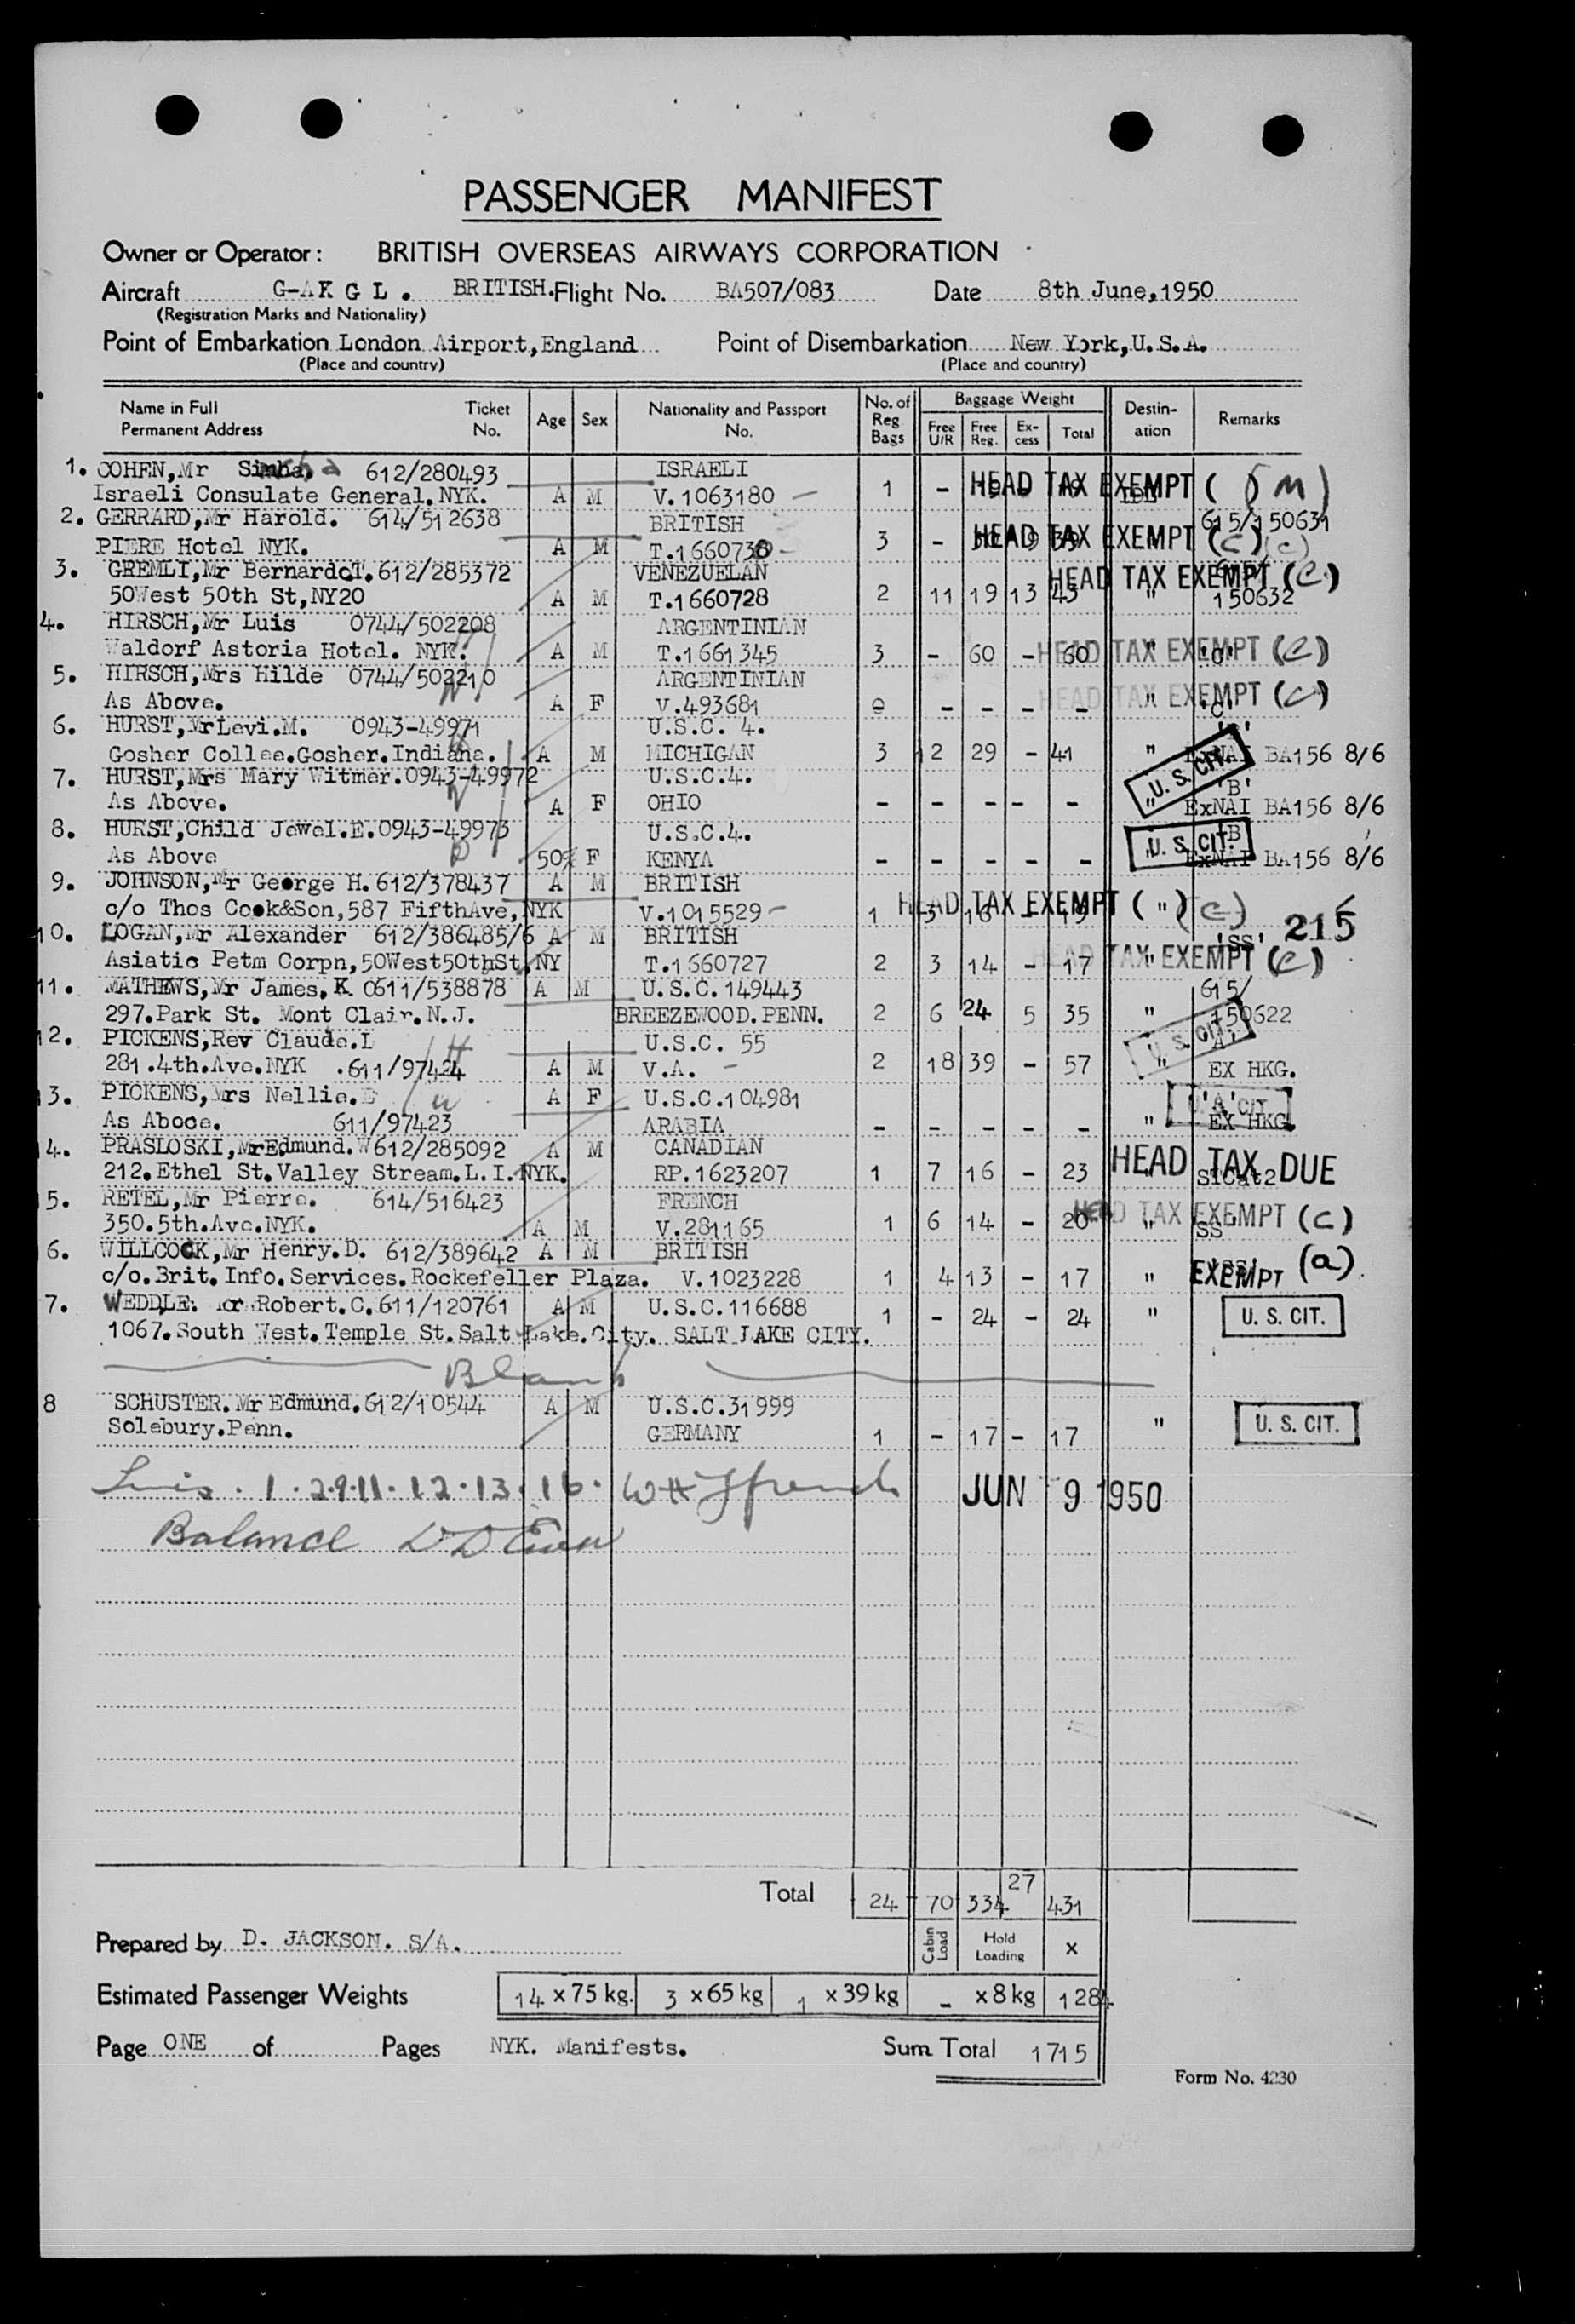 PASSENGER MANIFEST
Owner or Operator: BRITISH OVERSEAS AIRWAYS CORPORATION
Aircraft G-AKGL. BRITISH. Flight No. BA507/083 Date 8th June,1950
(Registration Marks and Nationality)
Point of Embarkation London Airport,England Point of Disembarkation New York,U.S.A.
(Place and country) (Place and country)
Name in Full Ticket Age Sex Nationality and Passport No. of Baggage Weight Destin- Remarks
Permanent Address No. No. Reg Bags Free U/R Free Reg. Ex-cess Total ation
1. COHEN,Mr 612/280493 ISRAELI
Israeli Consulate General.NYK. A M V.1063180 1 - HEAD TAX EXEMPT (
2. GERRARD,Mr Harold. 614/512638 BRITISH 615/150631
PIERE Hotel NYK. A M 3 - HEAD TAX EXEMPT (c) (c)
3. GREMLI,Mr Bernardo.T. 612/285372 VENEZUELAN HEAD TAX EXEMPT (c)
50West 50th St,NY20 A M T.1660728 2 11 19 13 43 " 150632
4. HIRSCH,Mr Luis 0744/502208 ARGENTINIAN
Waldorf Astoria Hotel. NYK. A M T.1661345 3 - 60 - 60 " HEAD TAX EXEMPT (c)
5. HIRSCH,Mrs Hilde 0744/502210 ARGENTINIAN
As Above. A F V.493681 0 - - - - " 'C' HEAD TAX EXEMPT (c)
6. HURST,MrLevi.M. 0943-49971 U.S.C. 4.
Gosher Collee.Gosher.Indiana. A M MICHIGAN 3 12 29 - 41 " ExNAI BA156 8/6
7. HURST,Mrs Mary Witmer.0943-49972 U.S.C.4. U. S. CIT. 'B'
As Above. A F OHIO - - - - - " ExNAI BA156 8/6
8. HURST,Child Jewel.E.0943-49973 U.S.C.4. 'B
As Above 50% F KENYA - - - - - " U. S. CIT. ExNAI BA156 8/6
9. JOHNSON,Mr George H. 612/378437 A M BRITISH
c/o Thos Cook&Son,587 FifthAve,NYK V.1015529 1 3 16 - 19 HEAD TAX EXEMPT (") (c) 215
10. LOGAN,Mr Alexander 612/386485/6 A M BRITISH 'SS'
Asiatic Petm Corpn,50West50thSt,NY T.1660727 2 3 14 - 17 " HEAD TAX EXEMPT (c)
11. MATHEWS,Mr James.K 0611/538878 A M U.S.C.149443 615/
297.Park St. Mont Clair.N.J. BREEZEWOOD.PENN. 2 6 24 5 35 " 150622
12. PICKENS,Rev Claude.L U.S.C. 55 U. S. CIT.
281.4th.Ave.NYK .611/97424 A M V.A. 2 18 39 - 57 " EX HKG.
13. PICKENS,Mrs Nellie. A F U.S.C.104981 'A' CIT
As Abooe. 611/97423 ARABIA - - - - - " EX HKG
14. PRASLOSKI,MrEdmund.W 612/285092 A M CANADIAN
212.Ethel St.Valley Stream.L.I.NYK. RP.1623207 1 7 16 - 23 HEAD TAX DUE
15. RETEL,Mr Pierre. 614/516423 FRENCH
350.5th.Ave.NYK. A M V.281165 1 6 14 - 20 " SS HEAD TAX EXEMPT (c)
16. WILLCOCK,Mr Henry.D. 612/389642 A M BRITISH
c/o.Brit.Info.Services.Rockefeller Plaza. V.1023228 1 4 13 - 17 " EXEMPT (a)
17. WEDDLE. Mr.Robert.C.611/120761 A M U.S.C.116688 1 - 24 - 24 " U. S. CIT.
1067.South West.Temple St.Salt Lake.City. SALT LAKE CITY.
Blank
8 SCHUSTER.Mr Edmund.612/10544 A M U.S.C.31999 " U. S. CIT.
Solebury.Penn. GERMANY 1 - 17 - 17
1.2.9.11.12.13.16. JUN 9 1950
Balance
Total 24 70 334 27 431
Prepared by D. JACKSON. S/A. Cabin Load Hold Loading x
Estimated Passenger Weights 14 x 75 kg. 3 x 65 kg 1 x 39 kg - x 8 kg 1284
Page ONE of Pages NYK. Manifests. Sum Total 1715
Form No. 4230